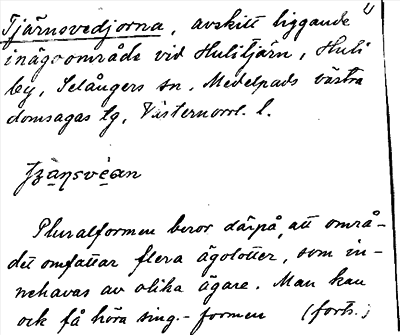 Tjärnsvedjorna, avskilt liggande
inägoområde vid Hulitjärn, Huli
by, Selångers sn, Medelpads västra
domsagas tg, Västernorrl. l.
Pluralformen beror därpå, att områ-
det omfattar flera ägolotter, som in-
nehavas av olika ägare. Man kan
ock få höra sing.-formen (forts.;